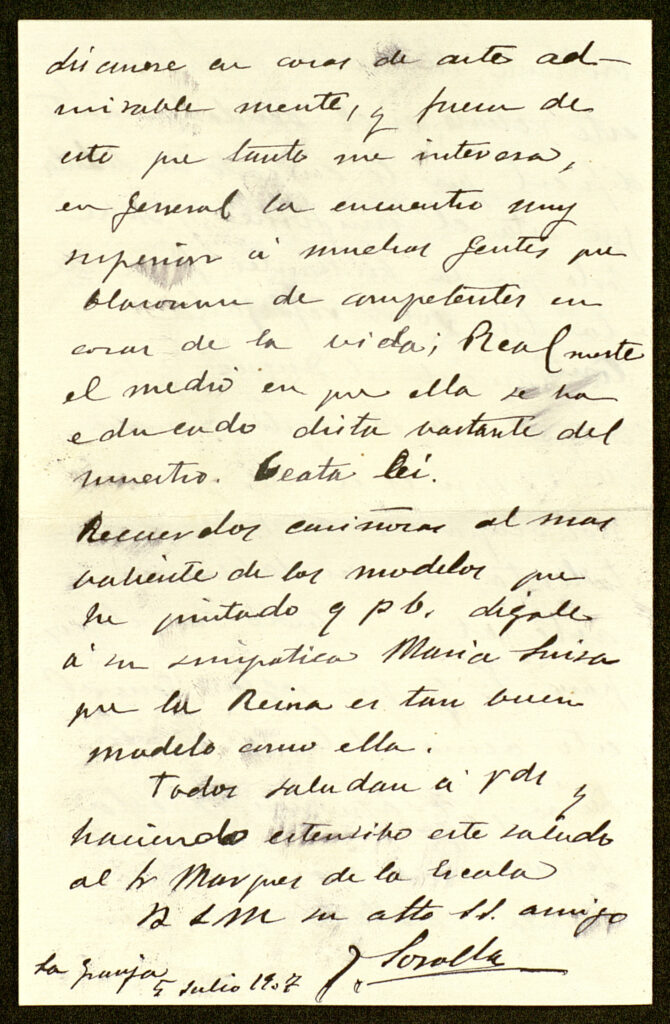 discurre en cosas de arte ad-
mirable mente, y fuera de
esto que tanto me interesa,
en general la encuentro muy
superior á muchas gentes que
blasonan de competentes en
cosas de la vida; Realmente
el medio en que ella se ha
educado dista bastante del
nuestro.
Recuerdos cariñosos al mas
valiente de los modelos que
he pintado q p b. digale
á su simpatica Maria Luisa
que la Reina es tan buen
modelo como ella.
Todos saludan á Vds y
haciendo estensibo este saludo
al Sr Marques de la Escala
B L M su atto S.S. amigo
J Sorolla
La Granja
5 Julio 1907